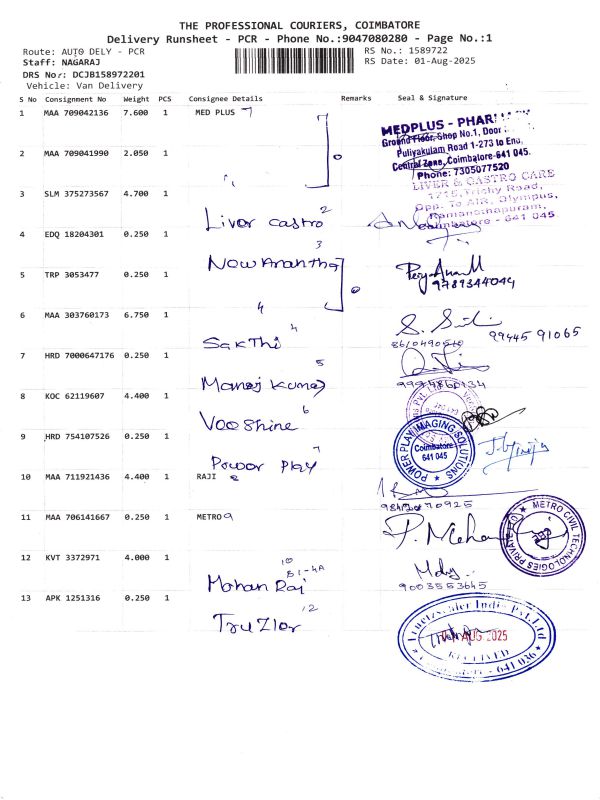 THE PROFESSIONAL COURIERS, COIMBATORE
Delivery Runsheet - PCR - Phone No.:9047080280 - Page No.:1
Route: AUTO DELY - PCR
RS No.: 1589722
Staff: NAGARAJ
RS Date: 01-Aug-2025
DRS No.: DCJB158972201
Vehicle: Van Delivery
S No Consignment No Weight PCS Consignee Details Remarks Seal & Signature
1 MAA 709042136 7.600 1 MED PLUS
MEDPLUS - PHAR
Ground Floor, Shop No.1, Door
Puliyakulam Road 1-273 to End,
Central Zone, Coimbatore-641 045.
Phone: 7305077520
2 MAA 709041990 2.050 1
3 SLM 375273567 4.700 1
LIVER & GASTRO CARE
1715, Trichy Road,
Opp. To AIR, Olympus,
Ramanathapuram,
Coimbatore - 641 045
Liver Castro 2
4 EDQ 18204301 0.250 1
3
Now Anantha
5 TRP 3053477 0.250 1
9789344044
6 MAA 303760173 6.750 1
4
Sakthi
99445 91065
7 HRD 7000647176 0.250 1
5
Manoj Kumar
8 KOC 62119607 4.400 1
6
Voo Shine
9 HRD 754107526 0.250 1
POWER PLAY IMAGING SOLUTIONS
Coimbatore
641 045
7
Power Play
10 MAA 711921436 4.400 1 RAJI 8
11 MAA 706141667 0.250 1 METRO 9
P. Mohan
METRO CIVIL TECHNOLOGIES PRIVATE
12 KVT 3372971 4.000 1
10
Mohan Raj
9003553645
13 APK 1251316 0.250 1
12
TruZlor
AUG 2025
RECEIVED
641 036